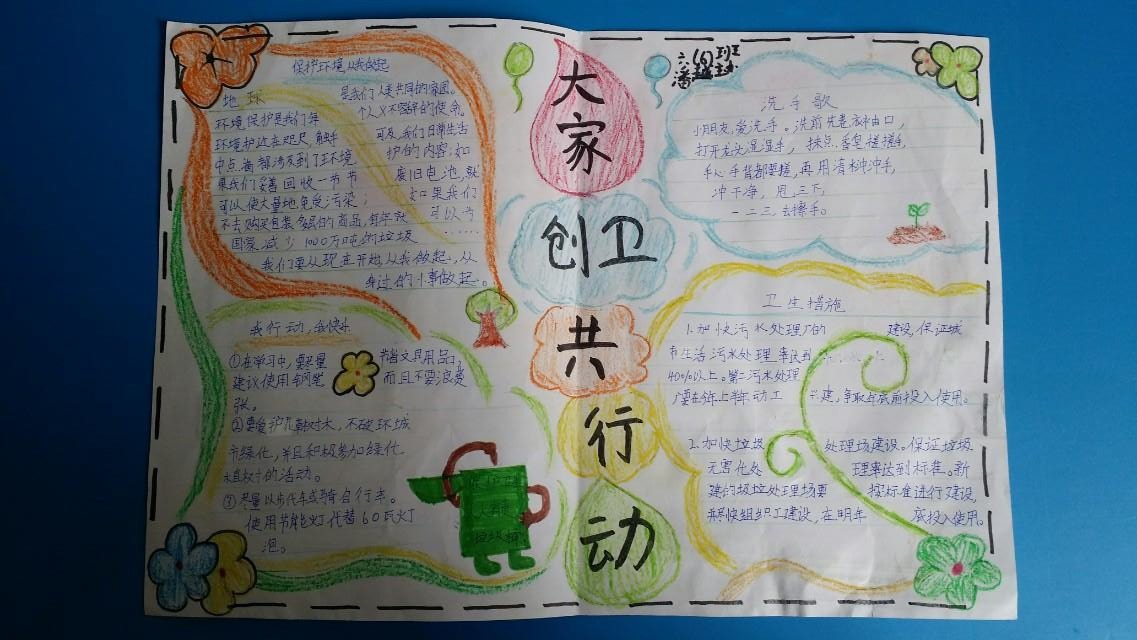 保护环境从我做起
地球
是我们人类共同的家园。
环境保护是我们每
个人义不容辞的使命。
环境护近在咫尺,触手
可及,我们日常生活
中点滴都涉及到了环境
护的内容;如
果我们妥善回收一节节
废旧电池,就
可以使大量地免受污染;
如果我们
不去购买包装多层的商品,每年就
可以为
国家减少1000万吨的垃圾
……
我们要从现在开始,从我做起,从
身过的小事做起。
大
家
创卫
共
行
动
六 班
洗手歌
小朋友,爱洗手。洗前先卷袖口,
打开龙头湿湿手,抹点香皂搓搓手,
手心手背都要搓,再用清水冲冲手,
冲干净,甩三下,
一二三,去擦手。
我行动,我快乐
①在学习中,要尽量
节省文具用品,
建议使用钢笔
而且不要浪费
张。
②要爱护几棵树木,不破环城
市绿化,并且积极参加绿化
植树的活动。
③尽量以步代车或骑自行车。
使用节能灯代替60瓦灯
泡。
卫生措施
1.加快污水处理厂的
建设,保证城
市生活污水处理率达到
40%以上。第二污水处理
厂要在今年上半年动工
兴建,争取年底前投入使用。
2.加快垃圾
处理场建设。保证垃圾
无害化处
理率达到标准。新
建的圾垃处理场要
按标准进行建设,
并尽快组织工建设,在明年
底投入使用。